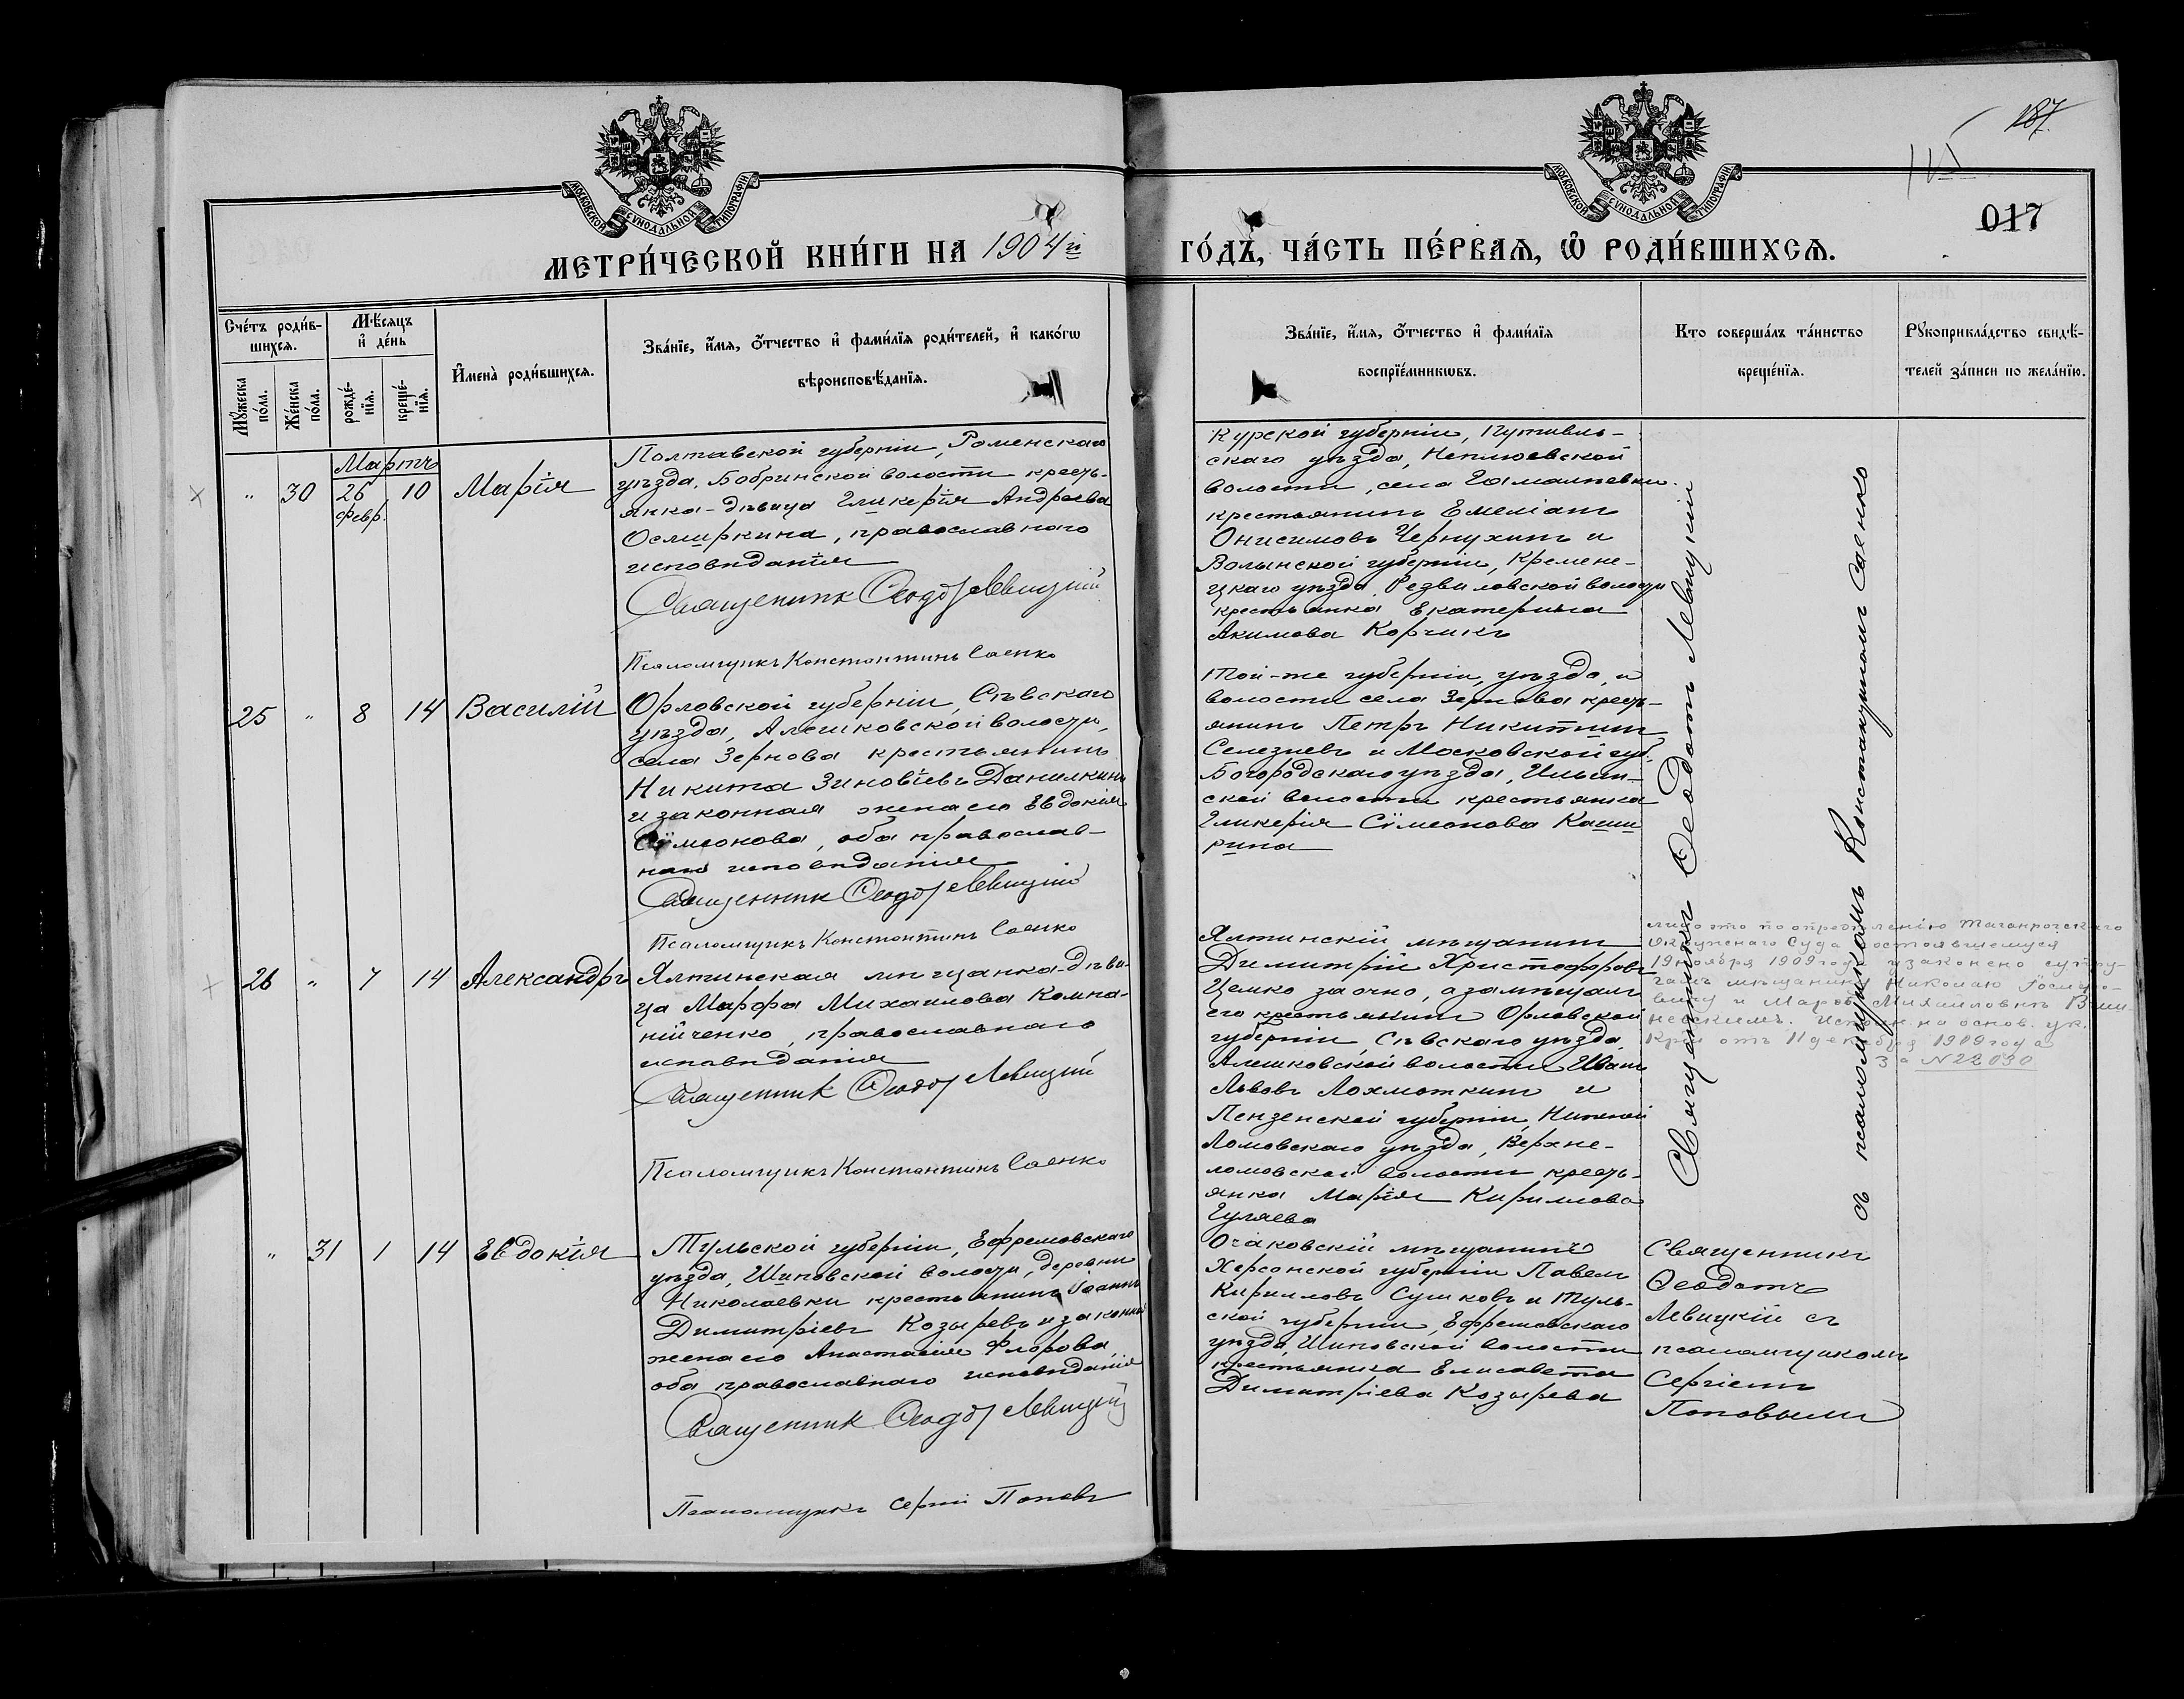 187
017
МОСКОВСКОЙ СѴНОДАЛЬНОЙ ТИПОГРАФІИ
МОСКОВСКОЙ СѴНОДАЛЬНОЙ ТИПОГРАФІИ
МЕТРИ́ЧЕСКОЙ КНИ́ГИ НА 1904 й
ГО́ДЪ, ЧА́СТЬ ПЕ́РВАѦ, Ѡ РОДИ́ВШИХСѦ.
Сче́тъ роди́в-
шихсѧ.
Мꙋжеска по́ла.
Же́нска по́ла.
Мѣ́сѧцъ и҆ де́нь
рожде́-нїѧ.
креще́-нїѧ.
И҆мена̀ роди́вшихсѧ.
Зва́нїе, и҆́мѧ, ѻ҆́тчество и҆ фами́лїѧ роди́телей, и҆ како́гѡ
вѣроисповѣ́данїѧ.
Зва́нїе, и҆́мѧ, ѻ҆́тчество и҆ фами́лїѧ
воспрїе́мникѡвъ.
Кто соверша́лъ та́инство
креще́нїѧ.
Рꙋкоприкла́дство свидѣ́-
телей за́писи по жела́нїю.
Мартъ
" 30 26 февр. 10 Марія
Полтавской губерніи, Роменскаго
уѣзда, Бобринской волости кресть-
янка-дѣвица Гликерія Андреева
Осмиркина, православнаго
исповѣданія
Священникъ Ѳеодотъ Левицкій
Псаломщикъ Константинъ Саенко
Курской губерніи, Путивль-
скаго уѣзда, Неплюевской
волости, села
крестьянинъ Емеліанъ
Онисимовъ Чернухинъ и
Волынской губерніи, Кремене-
цкаго уѣзда, волости
крестьянка Екатерина
Акимова Корчикъ
25 " 8 14 Василій
Орловской губерніи, Сѣвскаго
уѣзда, Алешковской волости,
села Зернова крестьянинъ
Никита Зиновіевъ Данилкинъ
и законная жена его Евдокія
Сѵмеонова, оба православ-
наго исповѣданія
Священникъ Ѳеодотъ Левицкій
Псаломщикъ Константинъ Саенко
Той-же губерніи, уѣзда, и
волости села Зернова кресть-
янинъ Петръ Никитинъ
Селезневъ и Московской губ.
Богородскаго уѣзда, Ильин-
ской волости крестьянка
Гликерія Сѵмеонова Каши
рина
26 " 7 14 Александръ
Ялтинская мѣщанка-дѣви-
ца Марфа Михаилова Компа-
нійченко, православнаго
исповѣданія
Священникъ Ѳеодотъ Левицкій
Псаломщикъ Константинъ Саенко
Ялтинскій мѣщанинъ
Димитрій Христофоровъ
Цемко заочно, а за мѣщанъ
его крестьянинъ Орловской
губерніи, Сѣвскаго уѣзда,
Алешковской волости Иванъ
Львовъ Лохматкинъ и
Пензенской губерніи, Нижней
Ломовскаго уѣзда, Верхне-
ломовской волости кресть-
янка Марія Кириллова
Гуляева
Священникъ Ѳеодотъ Левицкій
съ псаломщикомъ Константиномъ Саенко
лицо это по опредѣленію Таганрогскаго
Окружнаго Суда состоявшемуся
19 ноября 1909 года узаконено супру-
гамъ мѣщанину Николаю
вичу и Марѳѣ Михаиловнѣ
невскимъ. на основ. ук.
отъ 11 декабря 1909 года
за N 22030
" 31 1 14 Евдокія
Тульской губерніи, Ефремовскаго
уѣзда, Шиповской волости, деревни
Николаевки крестьянинъ Іоаннъ
Димитріевъ Козыревъ и законная
жена его Анастасія Флорова,
оба православнаго исповѣданія
Священникъ Ѳеодотъ Левицкій
Псаломщикъ Сергій Поповъ
Очаковскій мѣщанинъ
Херсонской губерніи Павелъ
Кирилловъ Сушковъ и Туль-
ской губерніи, Ефремовскаго
уѣзда, Шиповской волости
крестьянка Елисавета
Димитріева Козырева
Священникъ
Ѳеодотъ
Левицкій съ
псаломщикомъ
Сергіемъ
Поповымъ